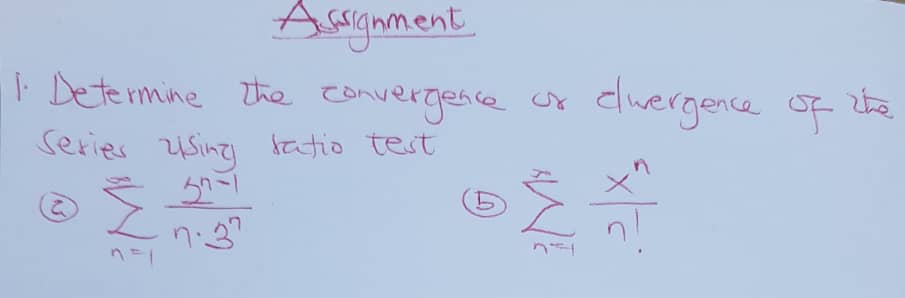 Assignment
1. Determine the convergence or divergence of the
series using ratio test
(a) ∑_{n=1}^{∞} 5^{n-1} / (n·3^n) (b) ∑_{n=1}^{∞} x^n / n!